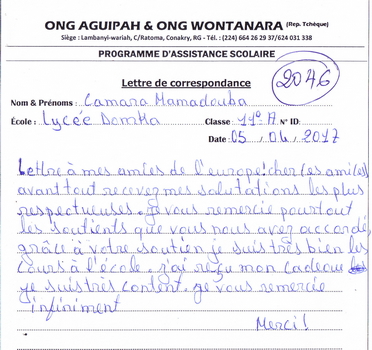 ONG AGUIPAH & ONG WONTANARA (Rep. Tchèque)
Siège : Lambanyi-wariah, C/Ratoma, Conakry, RG - Tél. : (224) 664 26 29 37/624 031 338
PROGRAMME D'ASSISTANCE SCOLAIRE
Lettre de correspondance
2046
Nom & Prénoms : Camara Mamadouba
École : Lycée Domka Classe : 11º A N° ID:
Date : 05 / 04 / 2017
Lettre à mes amies de l'europe! cher (es ami(es)
avant tout recevez mes salutations les plus
respectueuses. Je vous remercie pour tout
les soutients que vous nous avez accordé,
grâce à votre soutien je suis très bien les
cours à l'école. j'ai reçu mon cadeau
je suis très content. je vous remercie
infiniment
Merci!